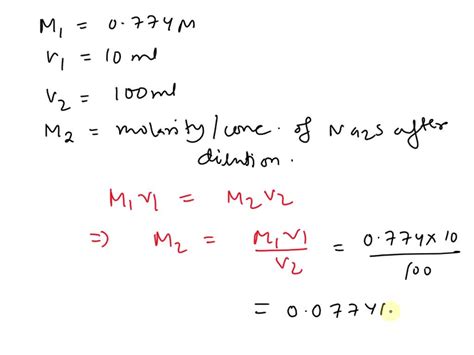 M₁ = 0.774M
V₁ = 10 ml
V₂ = 100ml
M₂ = molarity/conc. of Na2S after
dilution.
M₁V₁ = M₂V₂
⇒ M₂ = M₁V₁/V₂ = 0.774×10/100
= 0.0774